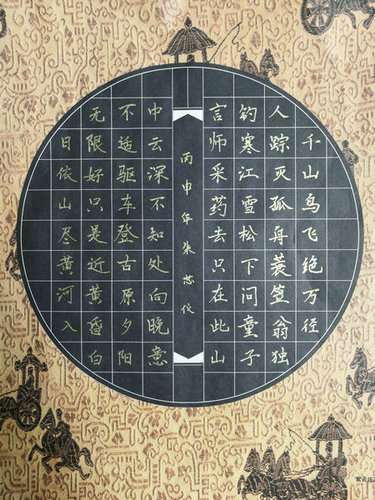 千山鸟飞绝万径
人踪灭孤舟蓑笠翁独
钓寒江雪松下问童子
言师采药去只在此山
丙申年芯仪
中云深不知处向晚意
不适驱车登古原夕阳
无限好只是近黄昏白
日依山尽黄河入